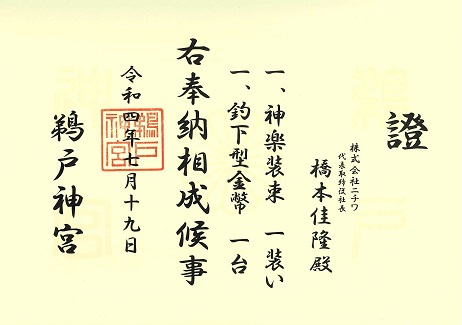 證
株式会社ニチワ
代表取締役社長
橋本佳隆殿
一、神楽装束 一装い
一、釣下型金幣 一台
右奉納相成候事
令和四年七月十九日
鵜戸神宮
鵜戸神宮